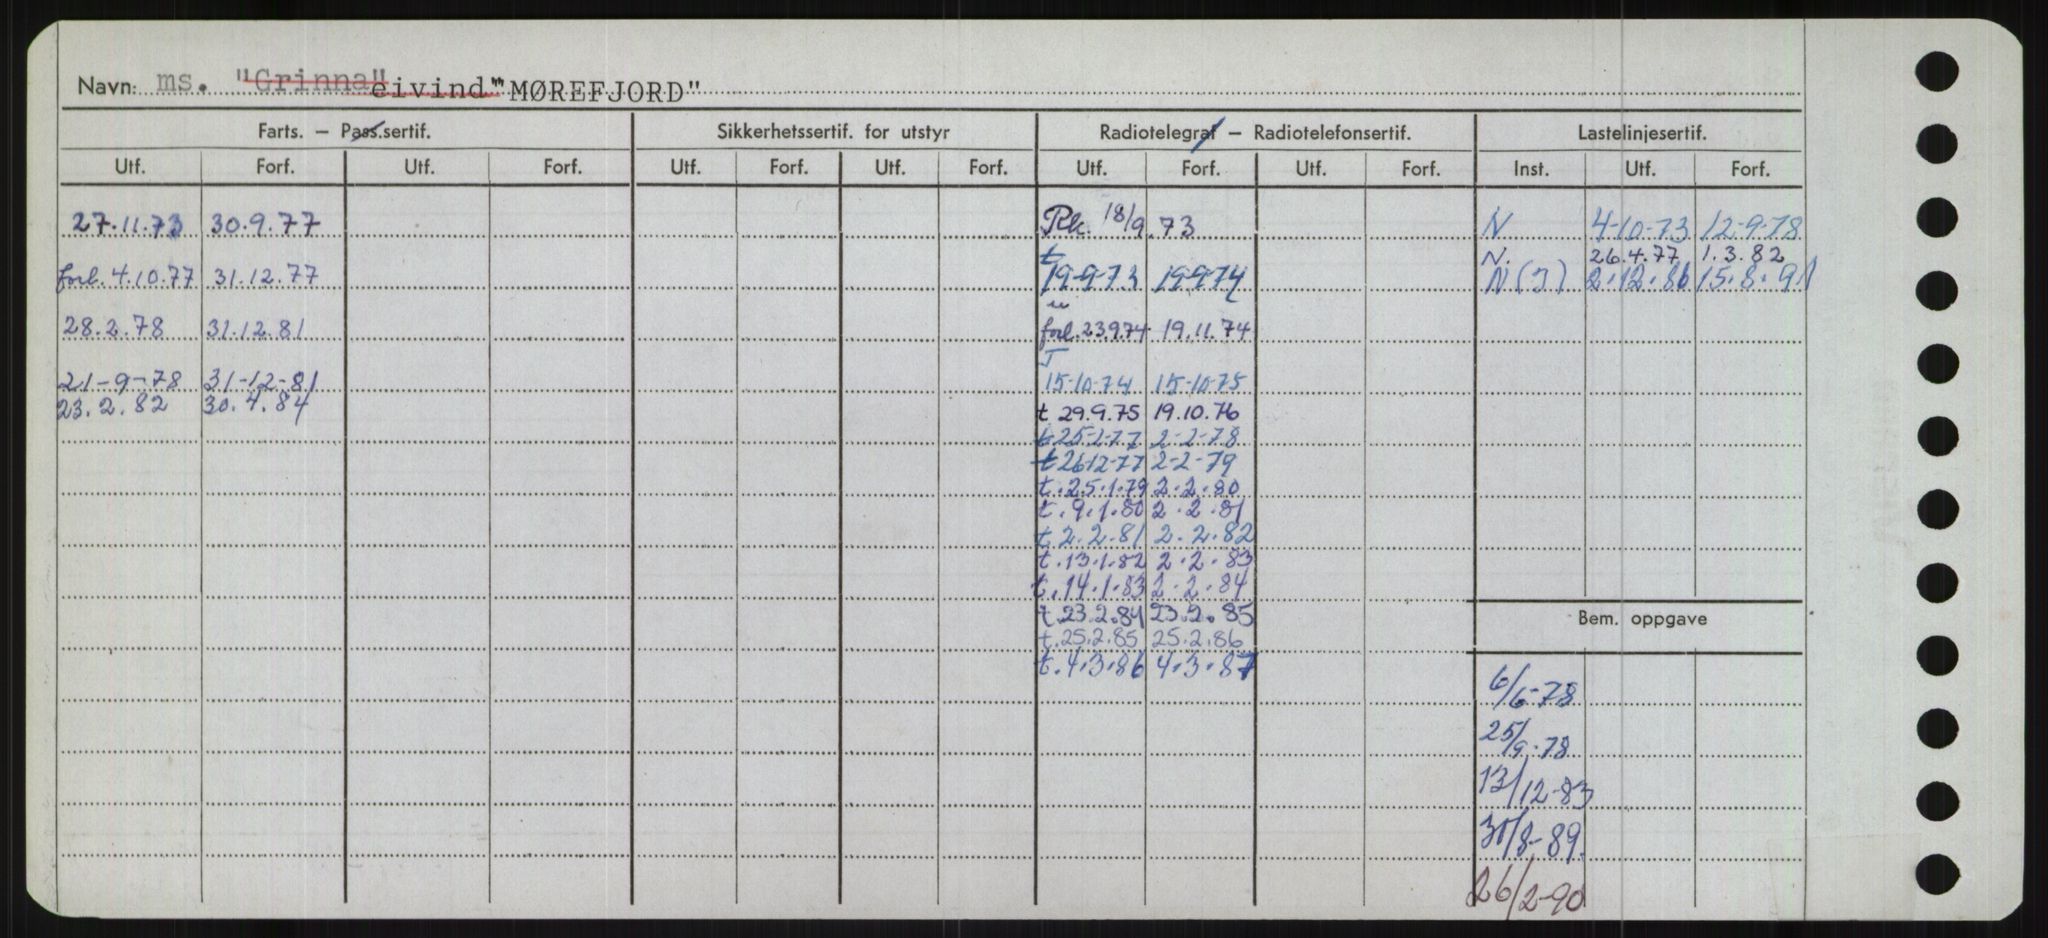 Navn: ms. "Grinna" eivind" "MØREFJORD"
Farts. – Pass.sertif. Sikkerhetssertif. for utstyr Radiotelegraf – Radiotelefonsertif. Lastelinjesertif.
Utf. Forf. Utf. Forf. Utf. Forf. Utf. Forf. Utf. Forf. Utf. Forf. Inst. Utf. Forf.
27.11.73 30.9.77 Rk. 18/9.73 N 4-10-73 12-9-78
t N. 26.4.77 1.3.82
forl. 4.10.77 31.12.77 19-9-73 19-9-74 N (J) 2.12.86 15.8.91
"
28.2.78 31.12.81 forl. 23.9.74 19.11.74
T
21-9-78 31-12-81 15-10-74 15-10-75
23.2.82 30.4.84 t 29.9.75 19.10.76
t 25-2-77 2-2-78
t 26-12-77 2-2-79
t. 25.1.79 2.2.80
t. 9.1.80 2.2.81
t. 2.2.81 2.2.82
t. 13.1.82 2.2.83
t. 14.1.83 2.2.84
t. 23.2.84 23.2.85
Bem. oppgave
t. 25.2.85 25.2.86
t. 4.3.86 4.3.87
6/6-78
25/9-78
13/12-83
31/8-89.
26/2-90